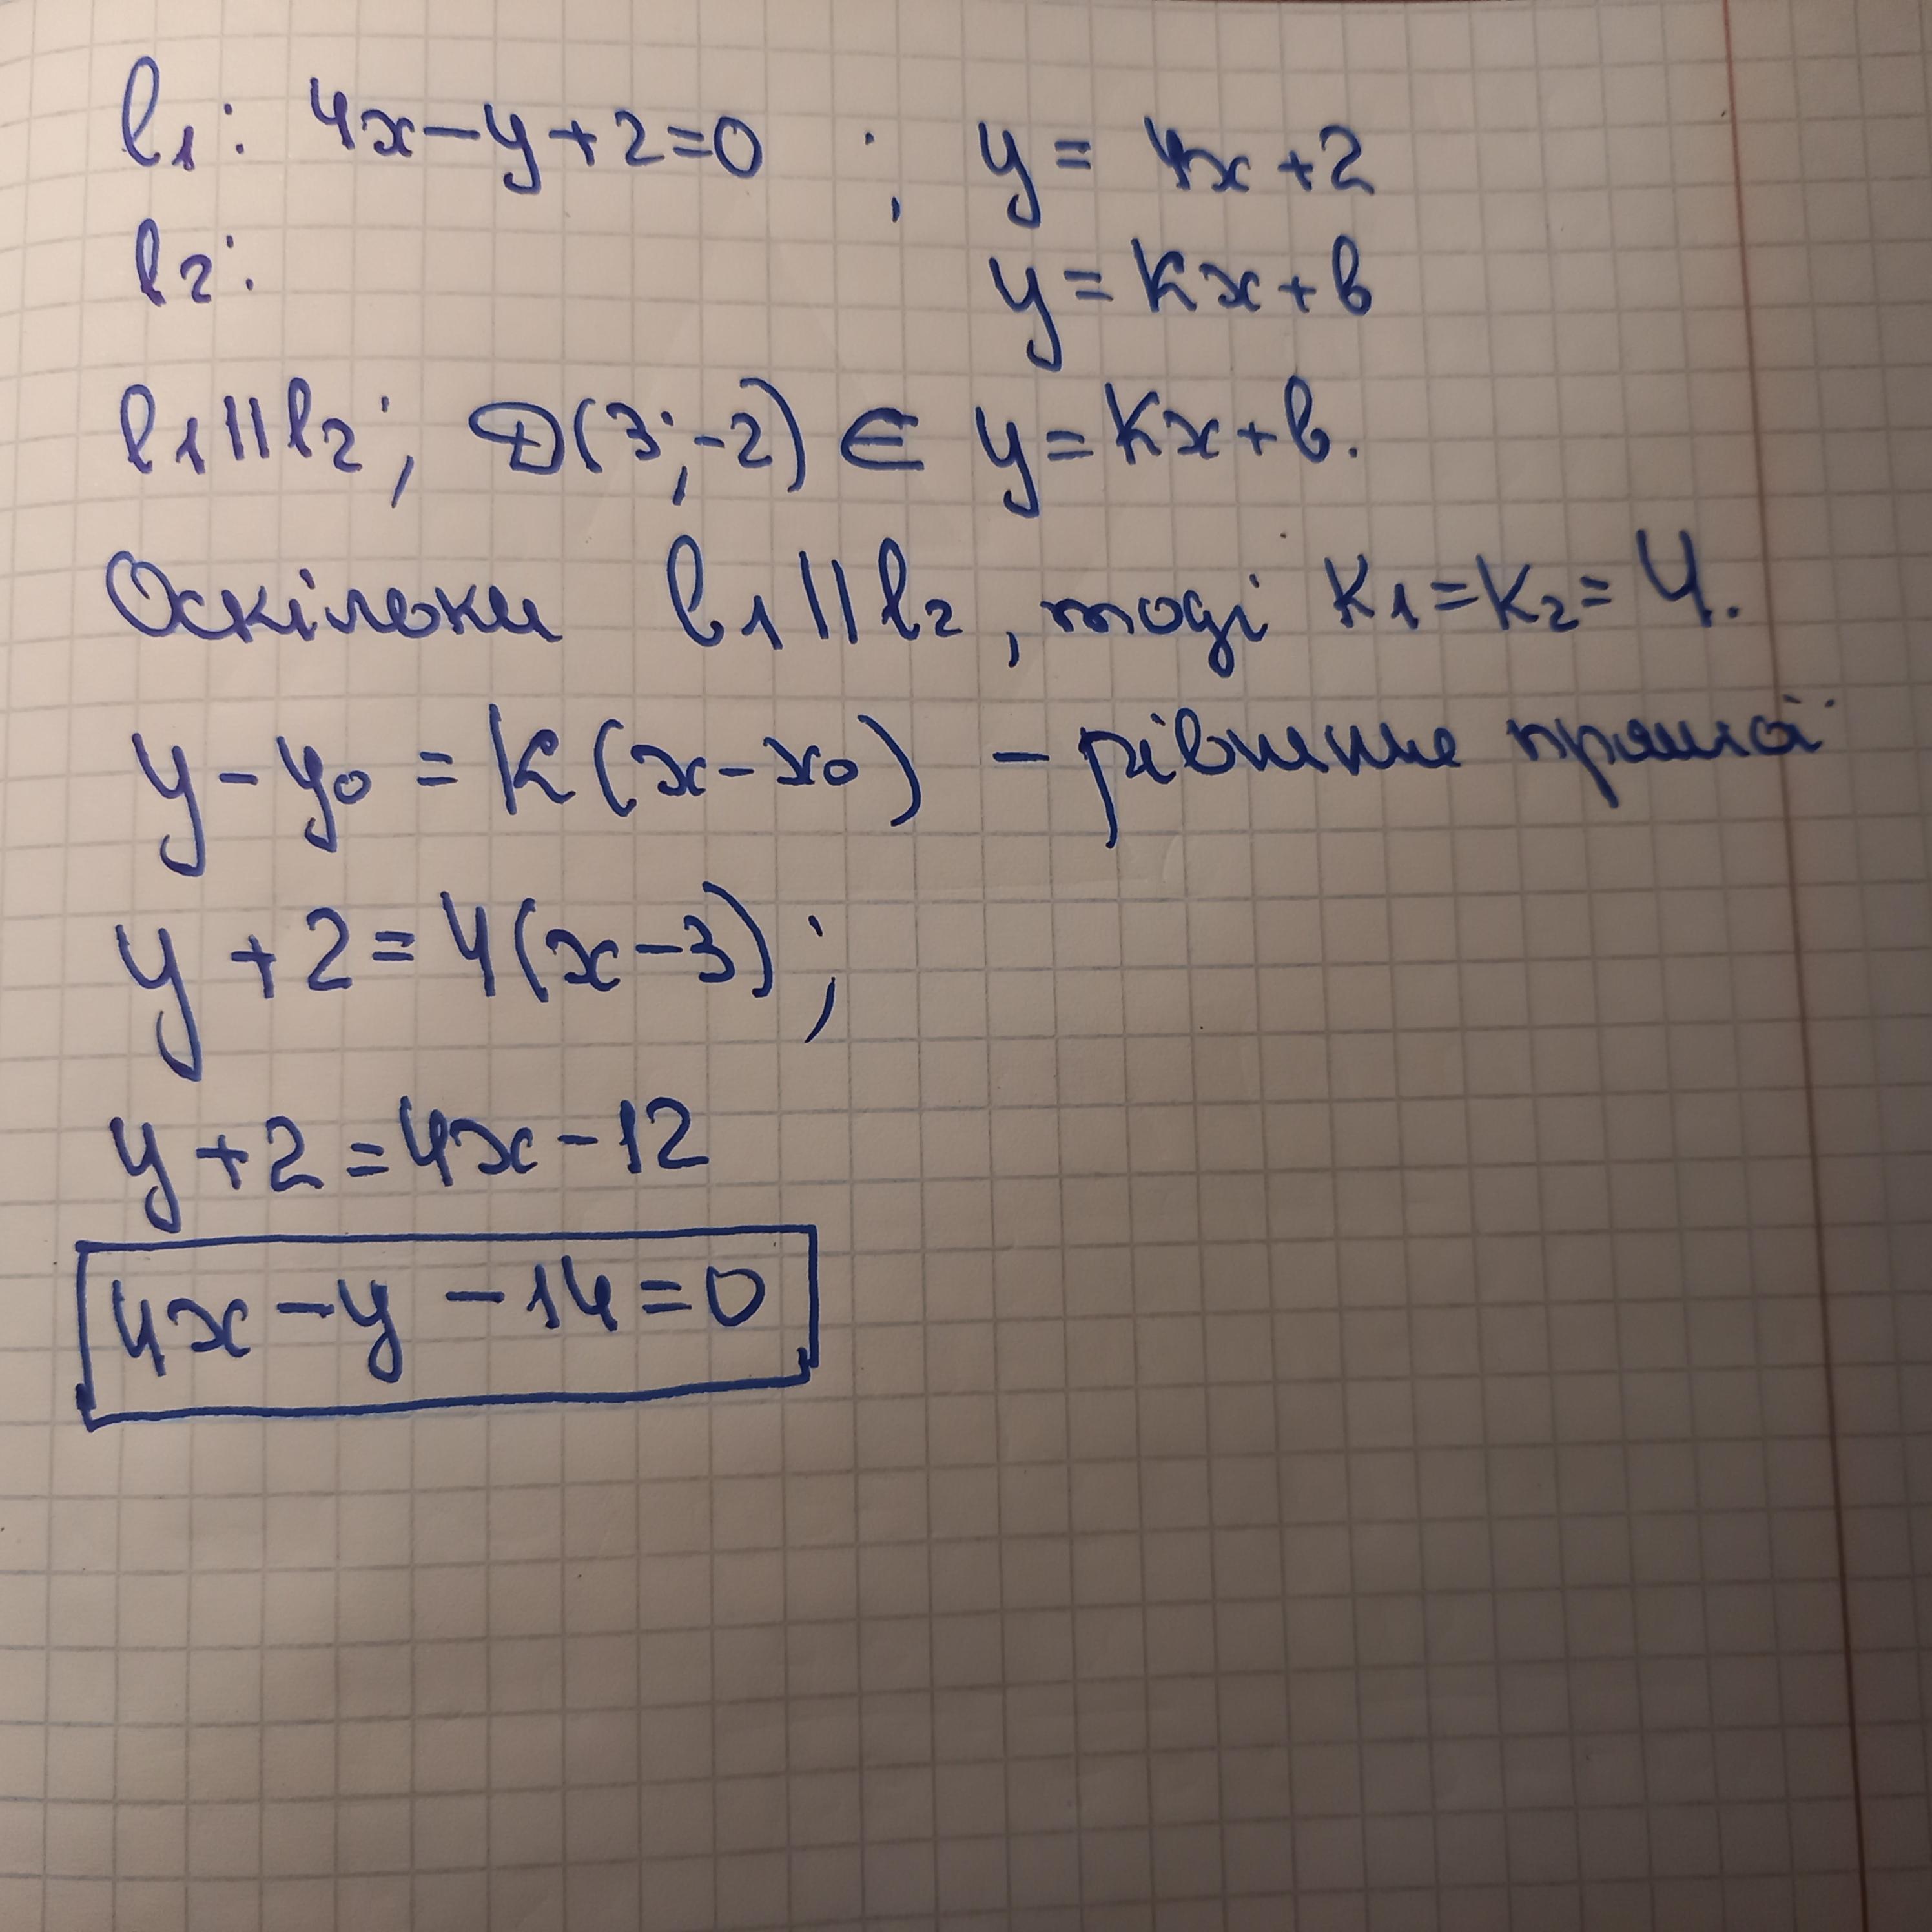 l₁: 4x-y+2=0 ; y = 4x+2
l₂: y=kx+b
l₁||l₂; D(3;-2) ∈ y=kx+b.
Оскільки l₁||l₂, тоді k₁=k₂=4.
y-y₀ = k(x-x₀) - рівняння прямої
y+2=4(x-3);
y+2=4x-12
4x-y-14=0